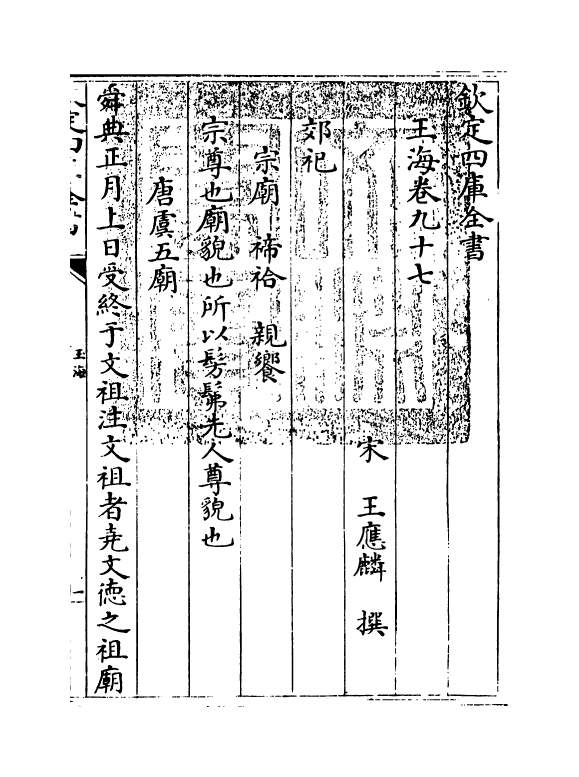 欽定四庫全書
玉海卷九十七
宋 王應麟 撰
郊祀
宗廟 禘祫 親饗
宗尊也廟貌也所以髣髴先人尊貌也
唐虞五廟
舜典正月上日受終于文祖注文祖者堯文徳之祖廟
玉海
一